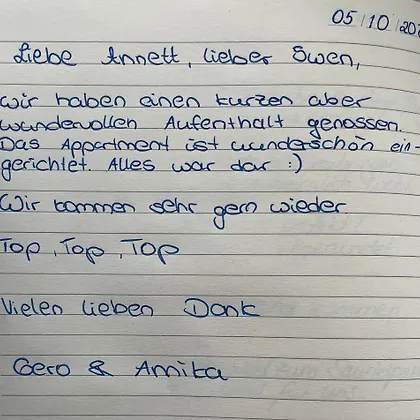 05/10/202
Liebe Annett, lieber Swen,
wir haben einen kurzen aber
wundervollen Aufenthalt genossen.
Das Appartment ist wunderschön ein-
gerichtet. Alles war dar :)
Wir kommen sehr gern wieder
Top, Top, Top
Vielen lieben Dank
Gero & Annika